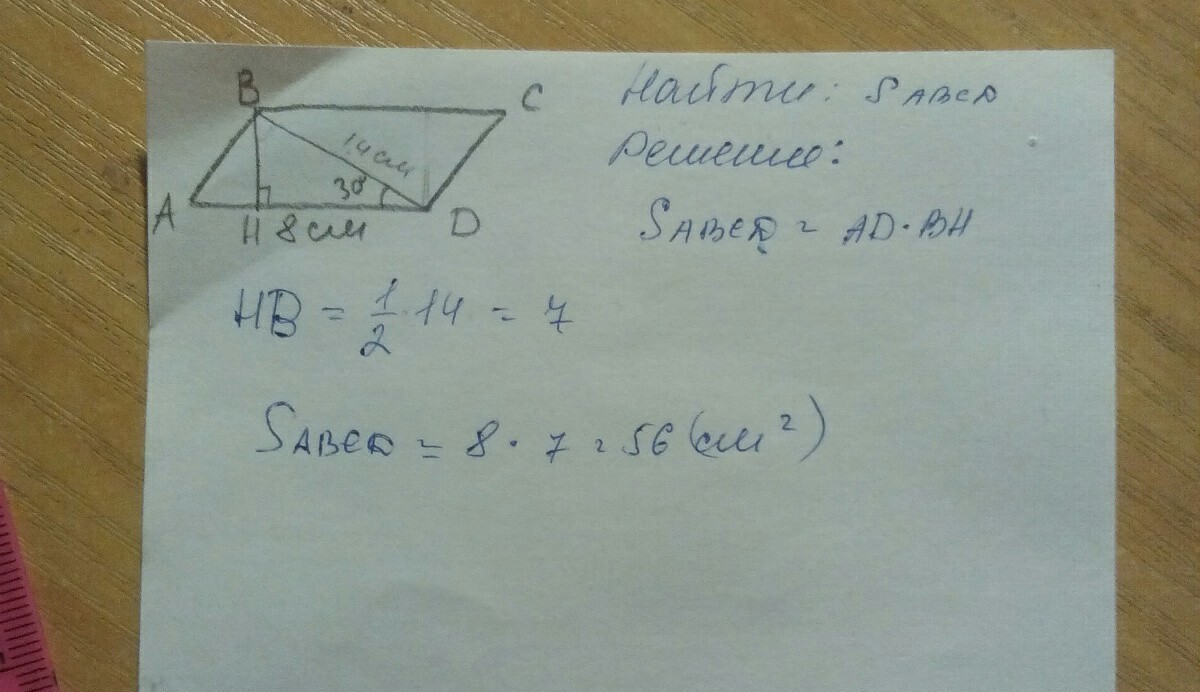 B
C
14 см
30°
A
H 8 см
D
Найти: SABCD
Решение:
SABCD = AD · BH
HB = 1/2 · 14 = 7
SABCD = 8 · 7 = 56 (см²)